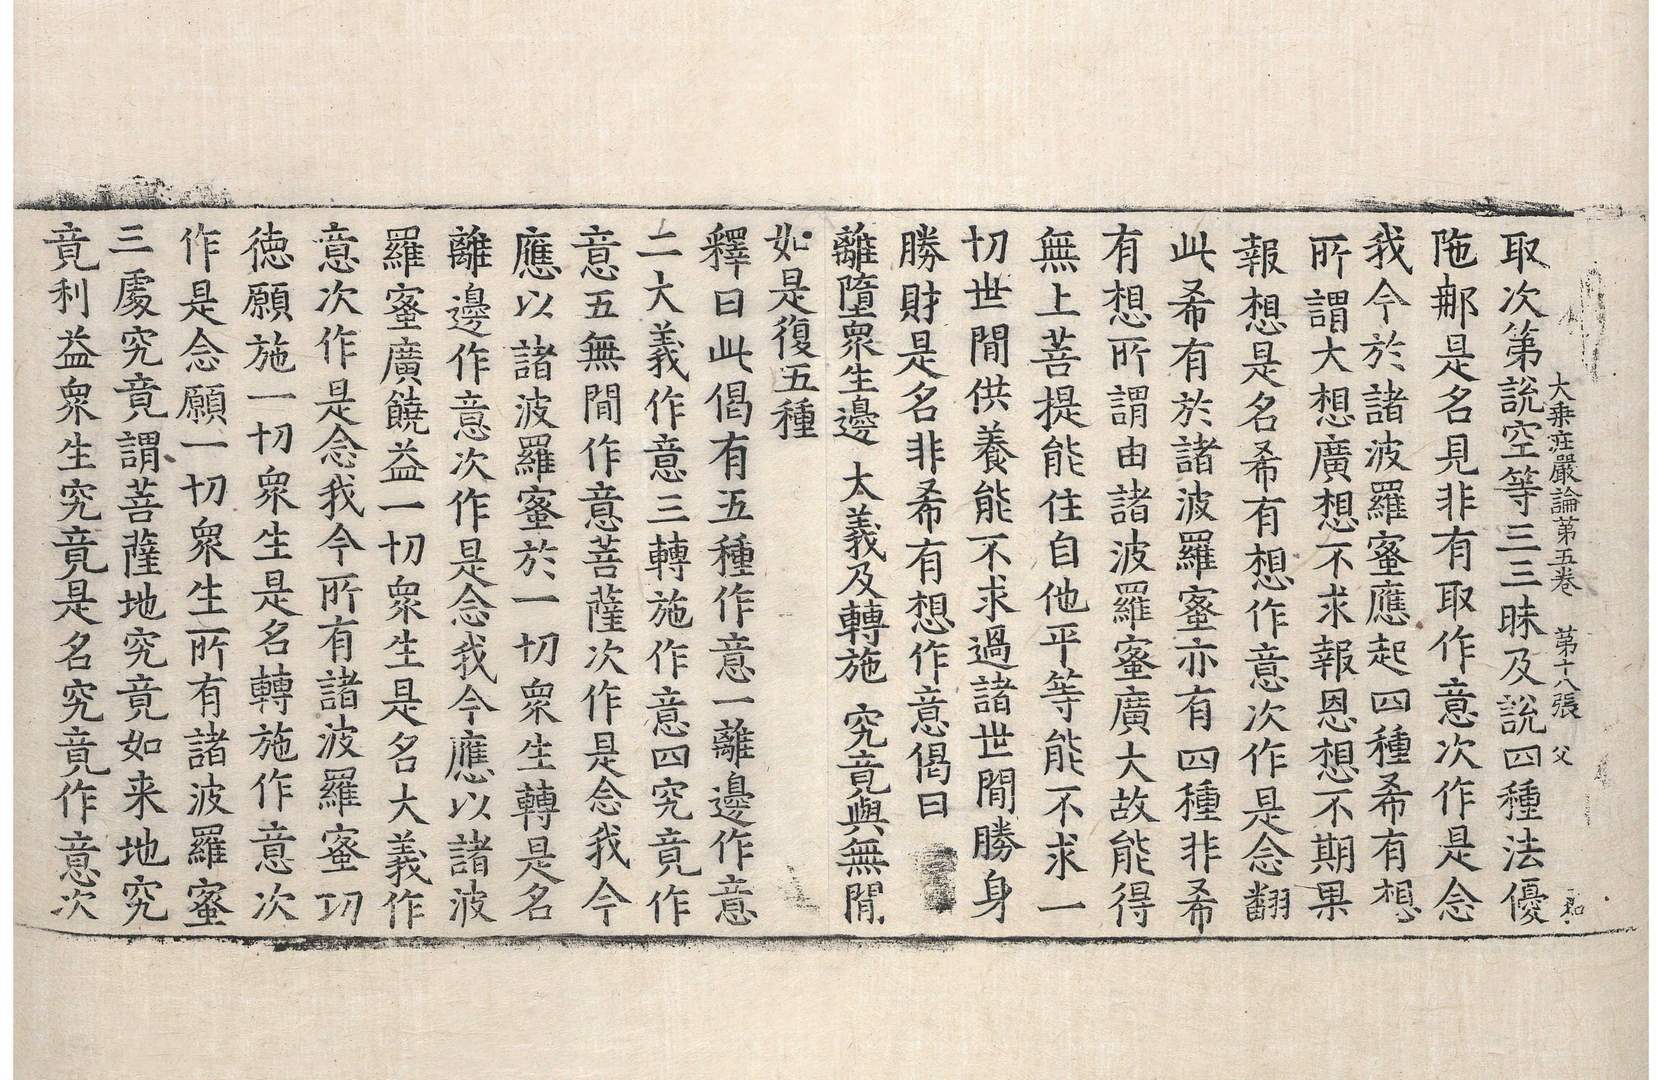 大乗庄嚴論第五卷 第十八張 父
取次第說空等三三昧及說四種法優
陁郍是名見非有取作意次作是念
我今於諸波羅蜜應起四種希有想
所謂大想廣想不求報恩想不期果
報想是名希有想作意次作是念翻
此希有於諸波羅蜜亦有四種非希
有想所謂由諸波羅蜜廣大故能得
無上菩提能住自他平等能不求一
切世閒供養能不求過諸世閒勝身
勝財是名非希有想作意偈曰
離墮衆生邊 大義及轉施 究竟與無閒
如是復五種
釋曰此偈有五種作意一離邊作意
二大義作意三轉施作意四究竟作
意五無閒作意菩薩次作是念我今
應以諸波羅蜜於一切衆生轉是名
離邊作意次作是念我今應以諸波
羅蜜廣饒益一切衆生是名大義作
意次作是念我今所有諸波羅蜜功
德願施一切衆生是名轉施作意次
作是念願一切衆生所有諸波羅蜜
三處究竟謂菩薩地究竟如来地究
竟利益衆生究竟是名究竟作意次